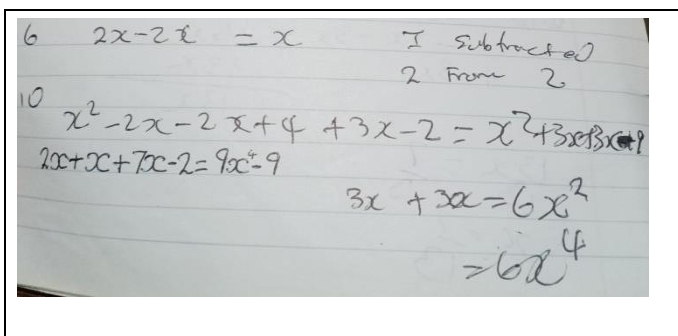 6 2x-2x = x I subtracted
2 From 2
10
x²-2x-2x+4 +3x-2 = x²+3x+3x+9
2x+x+7x-2=9x⁴-9
3x +3x=6x²
=6x⁴